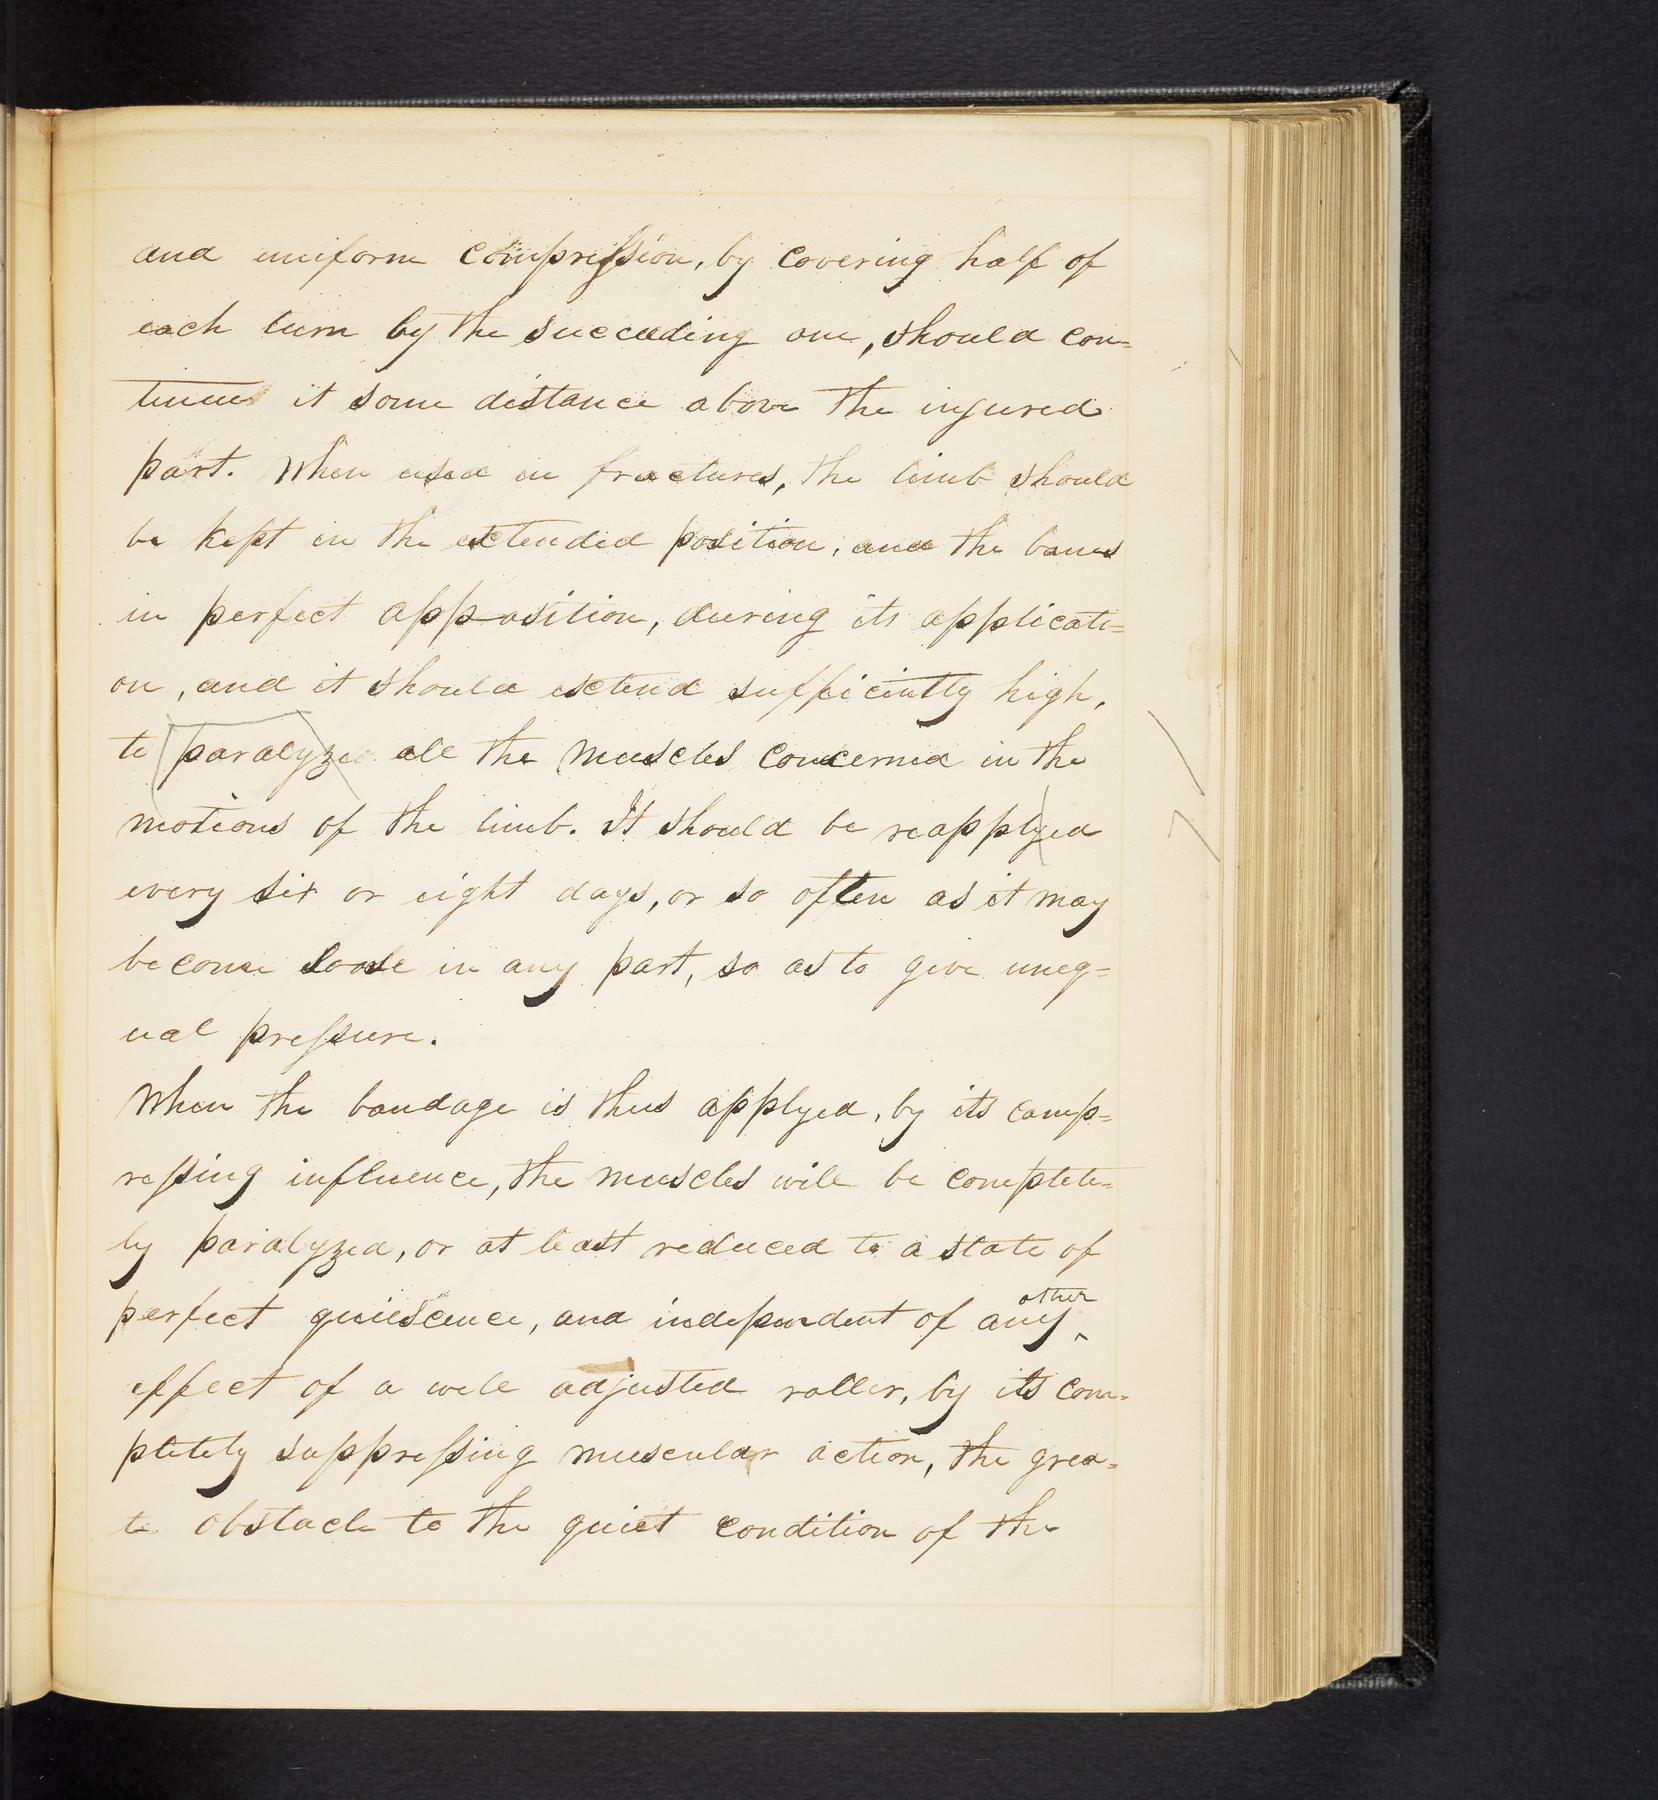 and uniform compression, by covering half of
each turn by the succeeding one, should con-
tinue it some distance above the injured
part. When used in fractures, the limb should
be kept in the extended position, and the bones
in perfect apposition, during its applicati=
on, and it should extend sufficiently high,
to paralyze all the muscles concerned in the
motions of the limb. It should be reapplyed
every six or eight days, or so often as it may
become loose in any part, so as to give uneq=
ual pressure.
When the bandage is thus applyed, by its comp=
ressing influence, the muscles will be complete=
ly paralyzed, or at least reduced to a state of
perfect quiescence, and independent of any ^other
effect of a well adjusted roller, by its com-
pletely suppressing muscular action, the grea-
te obstacle to the quiet condition of the